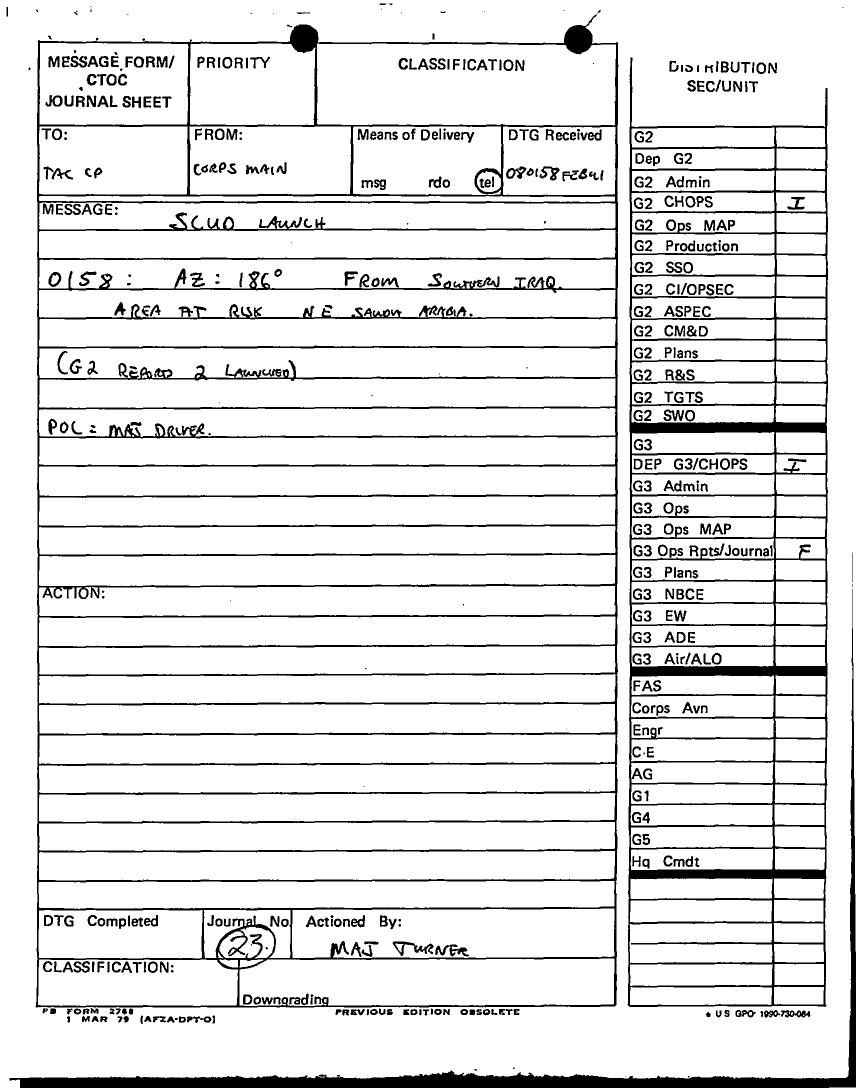 MESSAGE FORM/
CTOC
JOURNAL SHEET
PRIORITY
CLASSIFICATION
TO:
TAC CP
FROM:
CORPS MAIN
Means of Delivery
msg rdo tel
DTG Received
080158FEB91
MESSAGE:
SCUD LAUNCH
0158: AZ: 186° FROM SOUTHERN IRAQ.
AREA AT RISK NE SAUDI ARABIA.
(G2 REPORTS 2 LAUNCHED)
POC = MAJ DRIVER.
ACTION:
DTG Completed
Journal No.
23.
Actioned By:
MAJ TURNER
CLASSIFICATION:
Downgrading
FB FORM 2768
1 MAR 79 (AFZA-DPT-O)
PREVIOUS EDITION OBSOLETE
DISTRIBUTION
SEC/UNIT
G2
Dep G2
G2 Admin
G2 CHOPS I
G2 Ops MAP
G2 Production
G2 SSO
G2 CI/OPSEC
G2 ASPEC
G2 CM&D
G2 Plans
G2 R&S
G2 TGTS
G2 SWO
G3
DEP G3/CHOPS I
G3 Admin
G3 Ops
G3 Ops MAP
G3 Ops Rpts/Journal F
G3 Plans
G3 NBCE
G3 EW
G3 ADE
G3 Air/ALO
FAS
Corps Avn
Engr
C-E
AG
G1
G4
G5
Hq Cmdt
* U S GPO: 1990-730-084